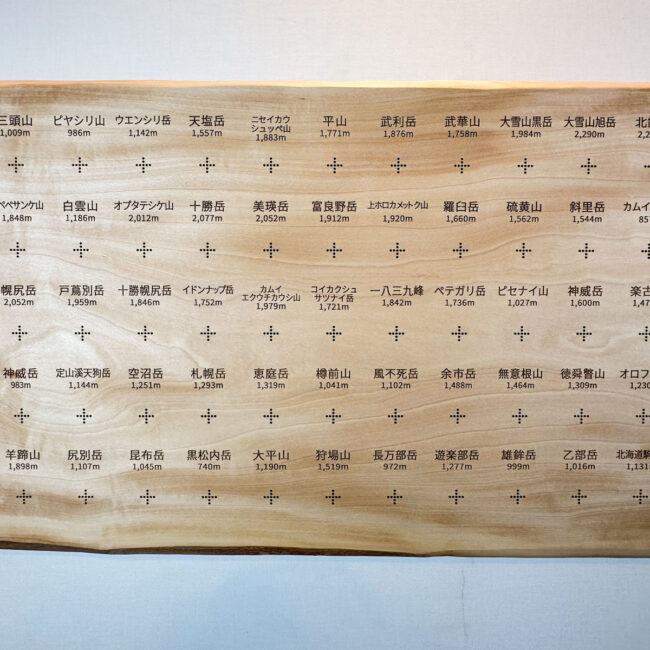 三頭山 ピヤシリ山 ウエンシリ岳 天塩岳 ニセイカウシュッペ山 平山 武利岳 武華山 大雪山黒岳 大雪山旭岳 北
1,009m 986m 1,142m 1,557m 1,883m 1,771m 1,876m 1,758m 1,984m 2,290m
ペペサンケ山 白雲山 オプタテシケ山 十勝岳 美瑛岳 富良野岳 上ホロカメットク山 羅臼岳 硫黄山 斜里岳 カムイ
1,848m 1,186m 2,012m 2,077m 2,052m 1,912m 1,920m 1,660m 1,562m 1,544m
幌尻岳 戸蔦別岳 十勝幌尻岳 イドンナップ岳 カムイエクウチカウシ山 コイカクシュサツナイ岳 一八三九峰 ペテガリ岳 ピセナイ山 神威岳 楽古
2,052m 1,959m 1,846m 1,752m 1,979m 1,721m 1,842m 1,736m 1,027m 1,600m
神威岳 定山渓天狗岳 空沼岳 札幌岳 恵庭岳 樽前山 風不死岳 余市岳 無意根山 徳舜瞥山 オロフ
983m 1,144m 1,251m 1,293m 1,319m 1,041m 1,102m 1,488m 1,464m 1,309m 1,230
羊蹄山 尻別岳 昆布岳 黒松内岳 大平山 狩場山 長万部岳 遊楽部岳 雄鉾岳 乙部岳 北海道駒
1,898m 1,107m 1,045m 740m 1,190m 1,519m 972m 1,277m 999m 1,016m 1,131